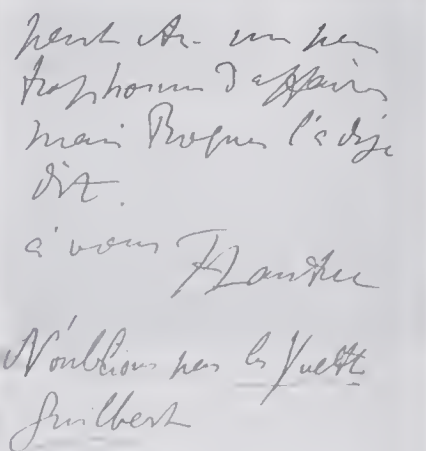 peut être un peu
trop homme d'affaires
mais Roques l'a déjà
dit.
à vous
HLautrec
N'oublions pas les Yvette
Guilbert